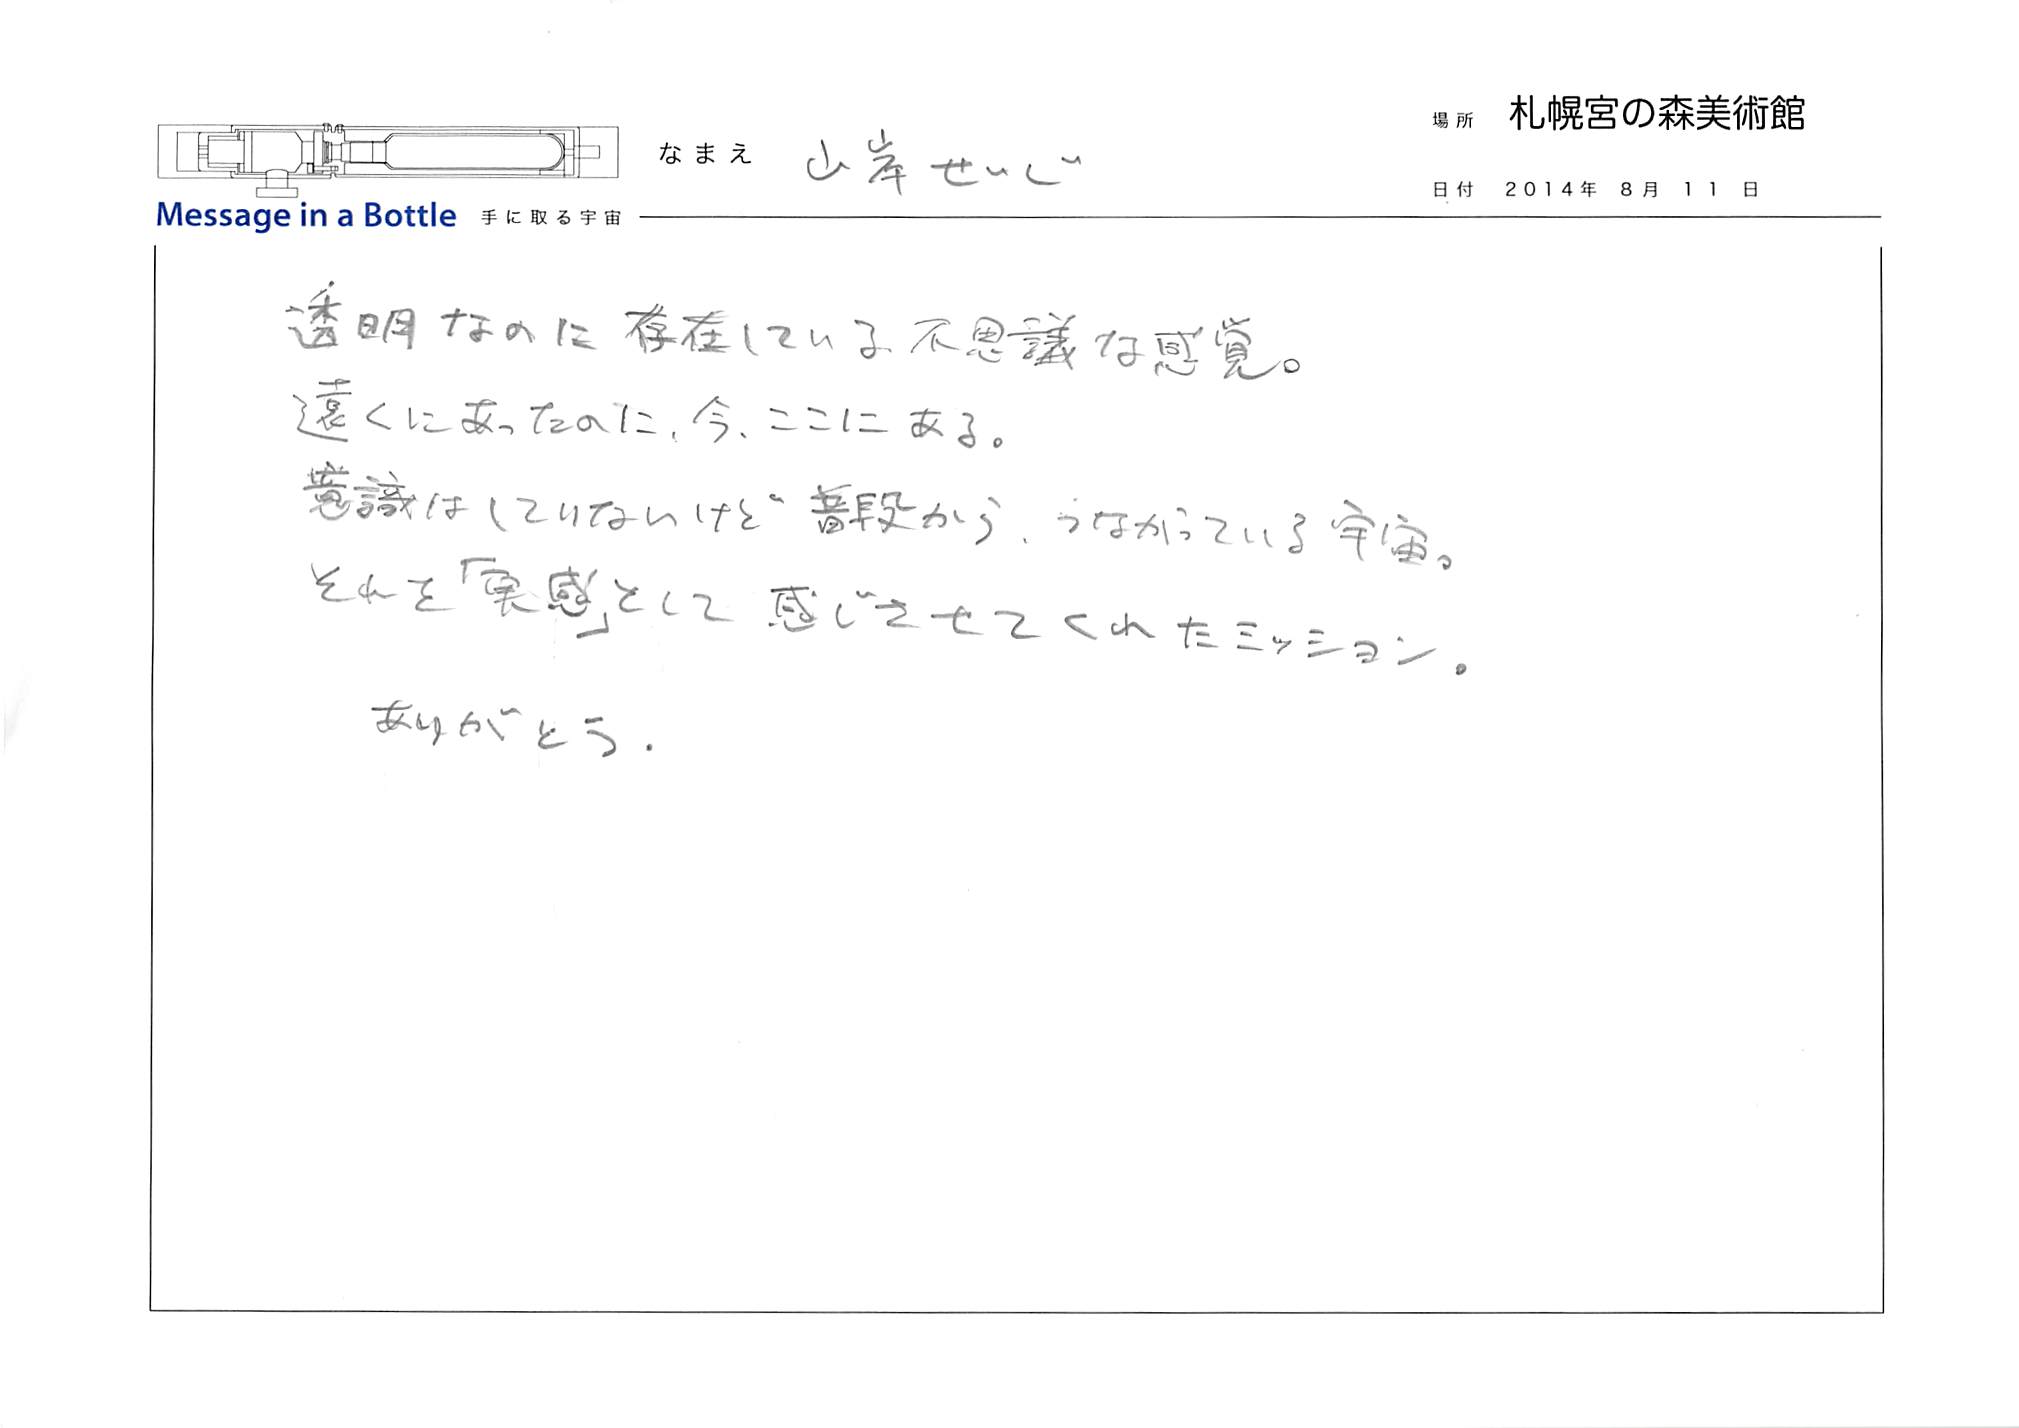 場所 札幌宮の森美術館
なまえ 山岸せいじ
日付 2014年 8月 11日
Message in a Bottle 手に取る宇宙
透明なのに存在している不思議な感覚。
遠くにあったのに、今、ここにある。
意識はしていないけど普段から、つながっている宇宙。
それを「実感」として感じさせてくれたミッション。
ありがとう.